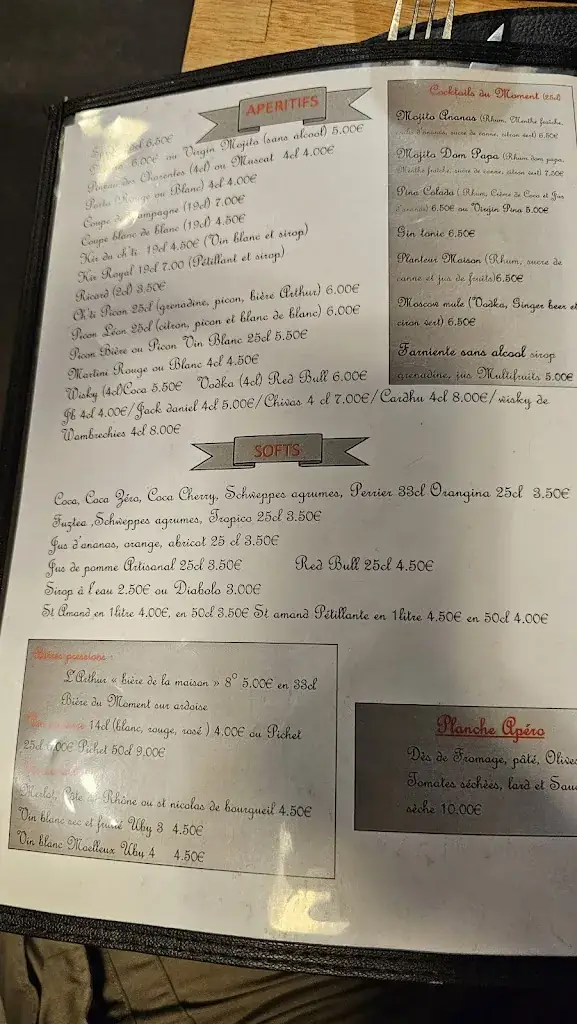 APERITIFS
6.50€
6.00€ ou Virgin Mojito (sans alcool) 5.00€
Pineau des Charentes (4cl) ou Muscat 4cl 4.00€
Porto (Rouge ou Blanc) 4cl 4.00€
Coupe de Champagne (19cl) 7.00€
Coupe blanc de blanc (19cl) 4.50€
Kir du ch'ti 19cl 4.50€ (Vin blanc et sirop)
Kir Royal 19cl 7.00 (Pétillant et sirop)
Ricard (2cl) 3.50€
Ch'ti Picon 25cl (grenadine, picon, bière Arthur) 6.00€
Picon Léon 25cl (citron, picon et blanc de blanc) 6.00€
Picon Bière ou Picon Vin Blanc 25cl 5.50€
Martini Rouge ou Blanc 4cl 4.50€
Wisky (4cl)Coca 5.50€ Vodka (4cl) Red Bull 6.00€
Jb 4cl 4.00€/Jack daniel 4cl 5.00€/Chivas 4 cl 7.00€/Cardhu 4cl 8.00€/wisky de
Wambrechies 4cl 8.00€
Cocktails du Moment (25cl)
Mojito Ananas (Rhum, Menthe fraîche,
jus d'ananas, sucre de canne, citron vert) 6.50€
Mojito Dom Papa (Rhum dom papa,
Menthe fraîche, sucre de canne, citron vert) 7.50€
Pina Colada (Rhum, Crème de Coco et Jus
d'ananas) 6.50€ ou Virgin Pina 5.00€
Gin tonic 6.50€
Planteur Maison (Rhum, sucre de
canne et jus de fruits)6.50€
Moscow mule (Vodka, Ginger beer et
citron vert) 6.50€
Farniente sans alcool sirop
grenadine, jus Multifruits 5.00€
SOFTS
Coca, Coca Zéro, Coca Cherry, Schweppes agrumes, Perrier 33cl Orangina 25cl 3.50€
Fuztea ,Schweppes agrumes, Tropico 25cl 3.50€
Jus d'ananas, orange, abricot 25 cl 3.50€
Jus de pomme Artisanal 25cl 3.50€ Red Bull 25cl 4.50€
Sirop à l'eau 2.50€ ou Diabolo 3.00€
St Amand en 1litre 4.00€, en 50cl 3.50€ St amand Pétillante en 1litre 4.50€ en 50cl 4.00€
Bières pressions :
L'Arthur « bière de la maison » 8° 5.00€ en 33cl
Bière du Moment sur ardoise
14cl (blanc, rouge, rosé ) 4.00€ ou Pichet
25cl 6.00€ Pichet 50cl 9.00€
Merlot, Côte du Rhône ou st nicolas de bourgueil 4.50€
Vin blanc sec et fruité Uby 3 4.50€
Vin blanc Moelleux Uby 4 4.50€
Planche Apéro
Dés de Fromage, pâté, Olives
Tomates séchées, lard et
sèche 10.00€